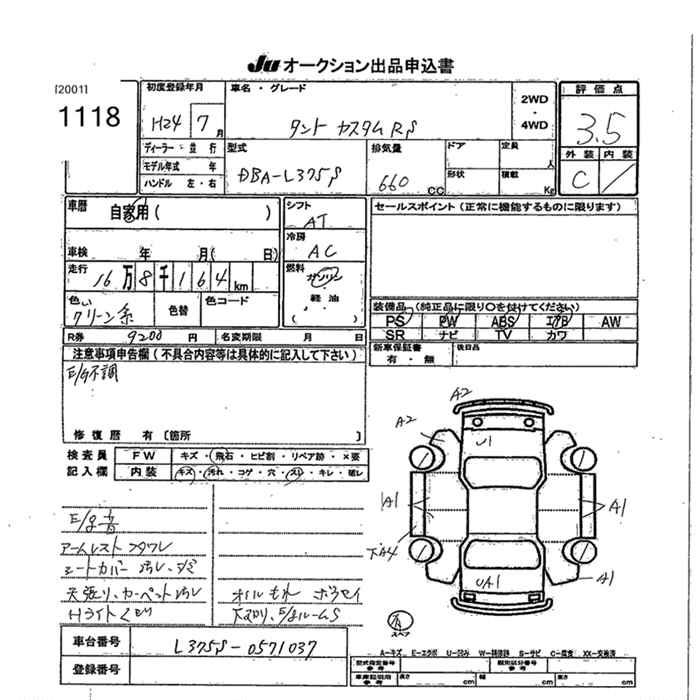 JU オークション出品申込書
[2001]
1118
初度登録年月
H24 7月
車名・グレード
タント カスタム RS
2WD・4WD
評価点
3.5
外装 内装
C /
ディーラー・並行
モデル年式 年
ハンドル 左・右
型式
DBA-L375S
排気量
660 CC
ドア
形状
定員 人
積載 Kg
車歴
自家用( )
車検 年 月( 日)
走行
16万8千164km
色い
クリーン系
色替
色コード
シフト
AT
冷房
AC
燃料
ガソリン
軽油
( )
セールスポイント(正常に機能するものに限ります)
装備品(純正品に限り〇を付けてください)
PS PW ABS エアB AW
SR ナビ TV カワ
新車保証書
有・無
後日品
R券 9200円 名変期限 月 日
注意事項申告欄(不具合内容等は具体的に記入して下さい)
E/G不調
修復歴 有〔箇所 〕
検査員
記入欄
FW キズ・飛石・ヒビ割・リペア跡・×要
内装 キズ・汚れ・コゲ・穴・スレ・キレ・破レ
E/g音
アームレスト コワレ
シートカバー 汚レ、シミ
天張り、カーペット汚レ
Hライトくもり
オイルもれ
下スリ、E/gルームS
A2
A2
U1
A1
A1
下A4
UA1
A1
スペア
A-キズ E-エクボ U-凹み W-補修跡 S-サビ C-腐食 XX-交換済
車台番号
L375S-0571037
登録番号
型式指定番号
参考
類別区分番号
参考
車庫証明用
参考
長さ cm
幅 cm
高さ cm